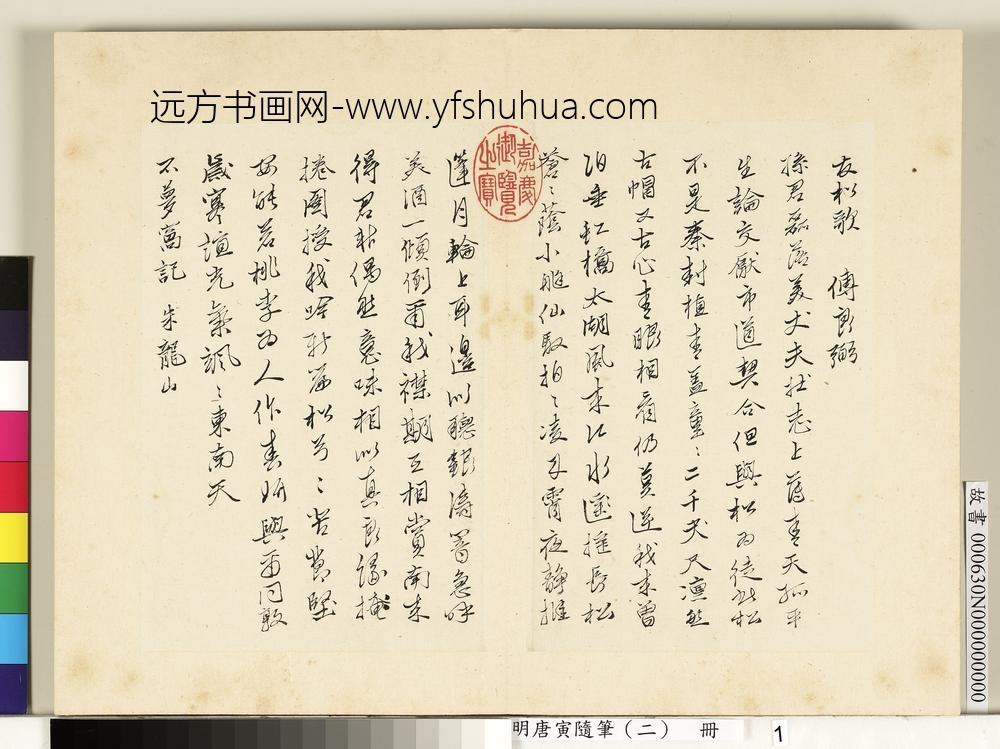 远方书画网-www.yfshuhua.com
友松歌 傅良弼
孫君磊落美丈夫壯志上薄青天孤平
生論交厭市道契合但與松為徒此松
不是秦封植青蓋童〻二千尺凜然
古帽又古心青眼相看仍莫逆我來曾
泊垂虹橋太湖風來江水遙推長松
蒼〻蔭小艇仙馭拍〻凌丹霄夜靜推
蓬月輪上耳邊似聽銀濤響急呼
美酒一傾倒爾我襟期互相賞南來
得君非偶然意味相似真良緣掩
捲圖授我吟新篇松兮〻苦節堅
安能若桃李為人作春妍與爾同敦
歲寒誼光氣颯〻東南天
不夢萬記 朱龍山
嘉慶
御覽
之寶
故書 000630N000000000
明唐寅隨筆（二） 冊 1